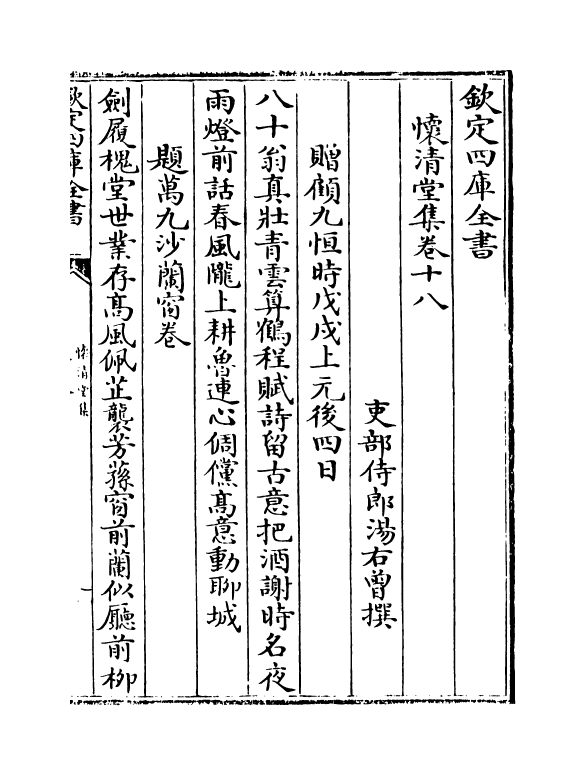 欽定四庫全書
懷清堂集卷十八
吏部侍郎湯右曾撰
贈顧九恒時戊戌上元後四日
八十翁真壯青雲算鶴程賦詩留古意把酒謝時名夜
雨燈前話春風隴上耕魯連心倜儻髙意動聊城
題萬九沙蘭窗卷
劍履槐堂世業存髙風佩芷襲芳蓀窗前蘭似廳前柳
欽定四庫全書
懷清堂集
一